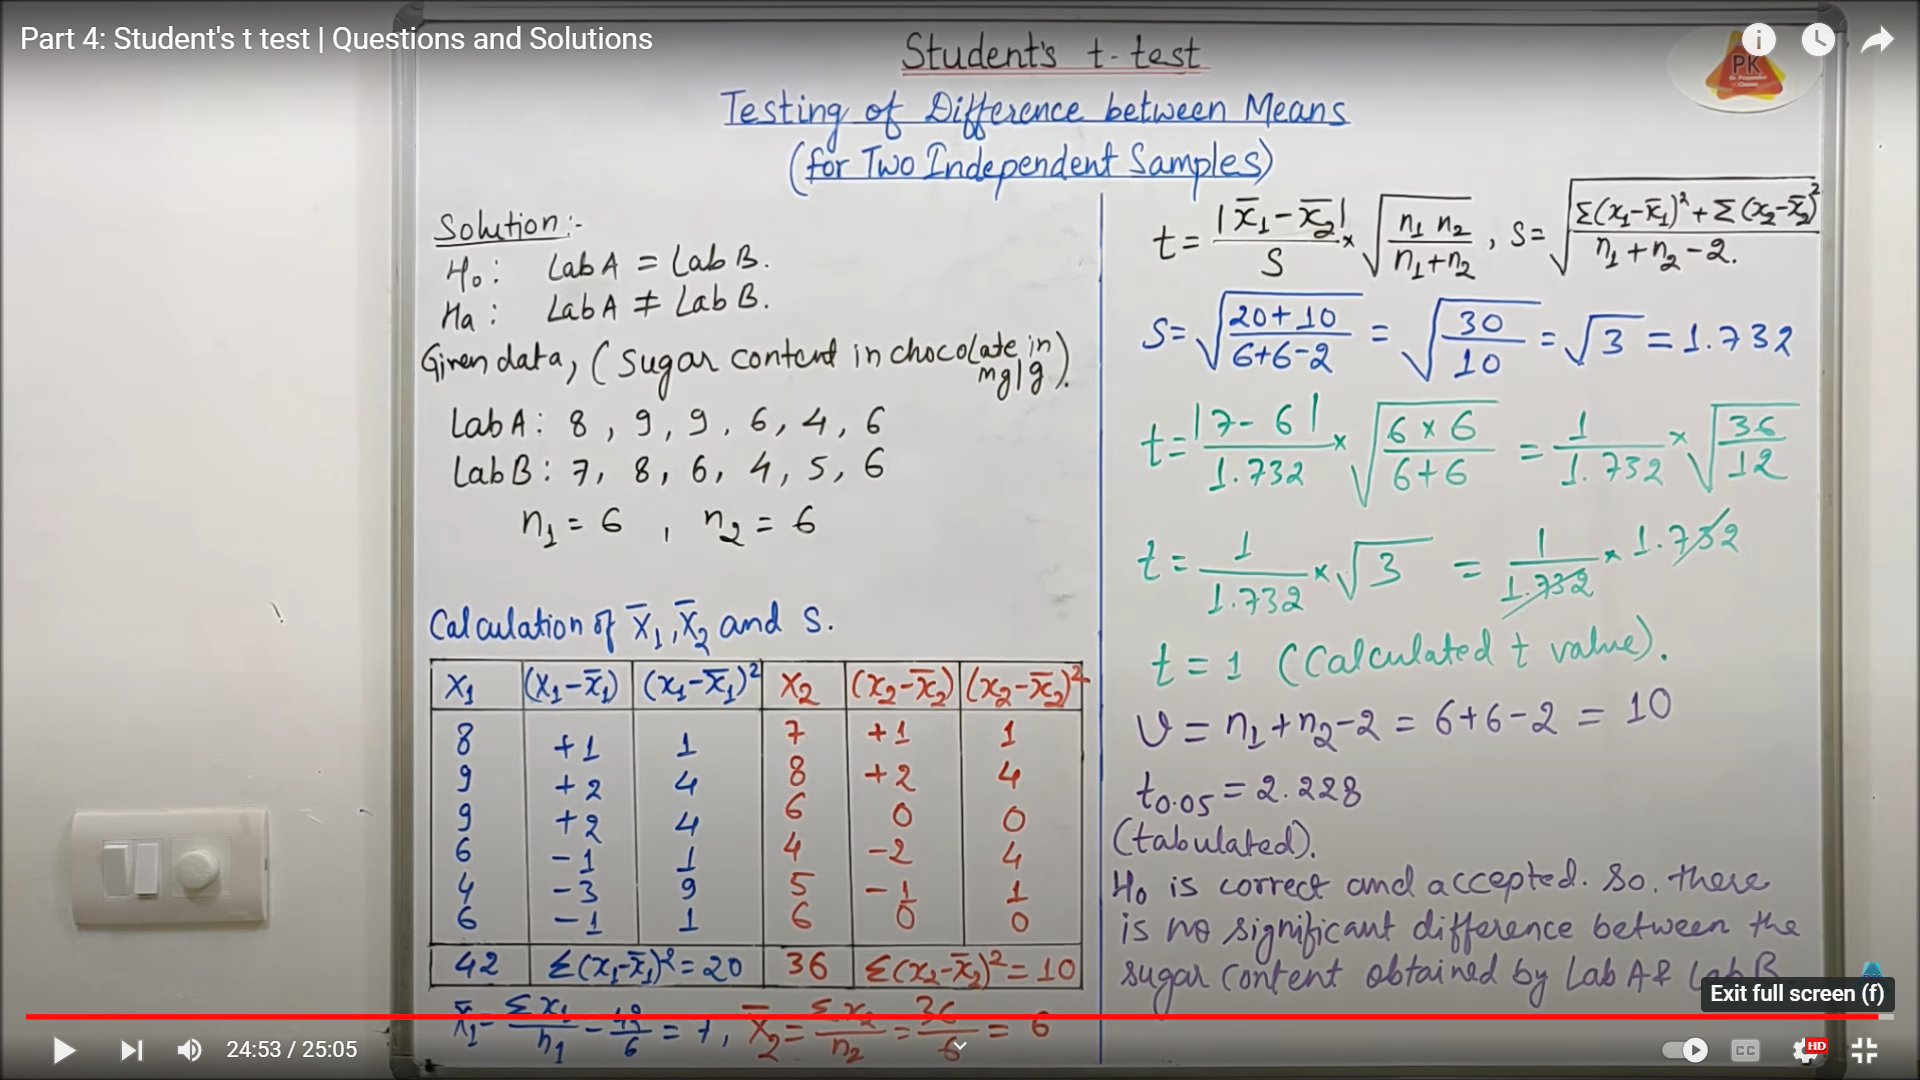 Part 4: Student's t test | Questions and Solutions
PK
Student's t-test
Testing of Difference between Means
(for Two Independent Samples)
Solution:-
H₀: Lab A = Lab B.
Ha: Lab A ≠ Lab B.
Given data, (Sugar content in chocolate in mg/g).
Lab A: 8, 9, 9, 6, 4, 6
Lab B: 7, 8, 6, 4, 5, 6
n₁ = 6 , n₂ = 6
Calculation of x̄₁, x̄₂ and S.
X₁ (x₁-x̄₁) (x₁-x̄₁)² X₂ (x₂-x̄₂) (x₂-x̄₂)²
8 +1 1 7 +1 1
9 +2 4 8 +2 4
9 +2 4 6 0 0
6 -1 1 4 -2 4
4 -3 9 5 -1 1
6 -1 1 6 0 0
42 Σ(x₁-x̄₁)² = 20 36 Σ(x₂-x̄₂)² = 10
x̄₁ = Σx₁/n₁ = 42/6 = 7, x̄₂ = Σx₂/n₂ = 36/6 = 6
t = |x̄₁-x̄₂|/S × √(n₁ n₂/n₁+n₂) , S = √(Σ(x₁-x̄₁)² + Σ(x₂-x̄₂)²/n₁+n₂-2.)
S = √(20+10/6+6-2) = √(30/10) = √3 = 1.732
t = |7-6|/1.732 × √(6×6/6+6) = 1/1.732 × √(36/12)
t = 1/1.732 × √3 = 1/1.732 × 1.732
t = 1 (Calculated t value).
υ = n₁+n₂-2 = 6+6-2 = 10
t₀.₀₅ = 2.228
(tabulated).
H₀ is correct and accepted. So, there
is no significant difference between the
sugar content obtained by Lab A & Lab B
Exit full screen (f)
24:53 / 25:05
CC
HD